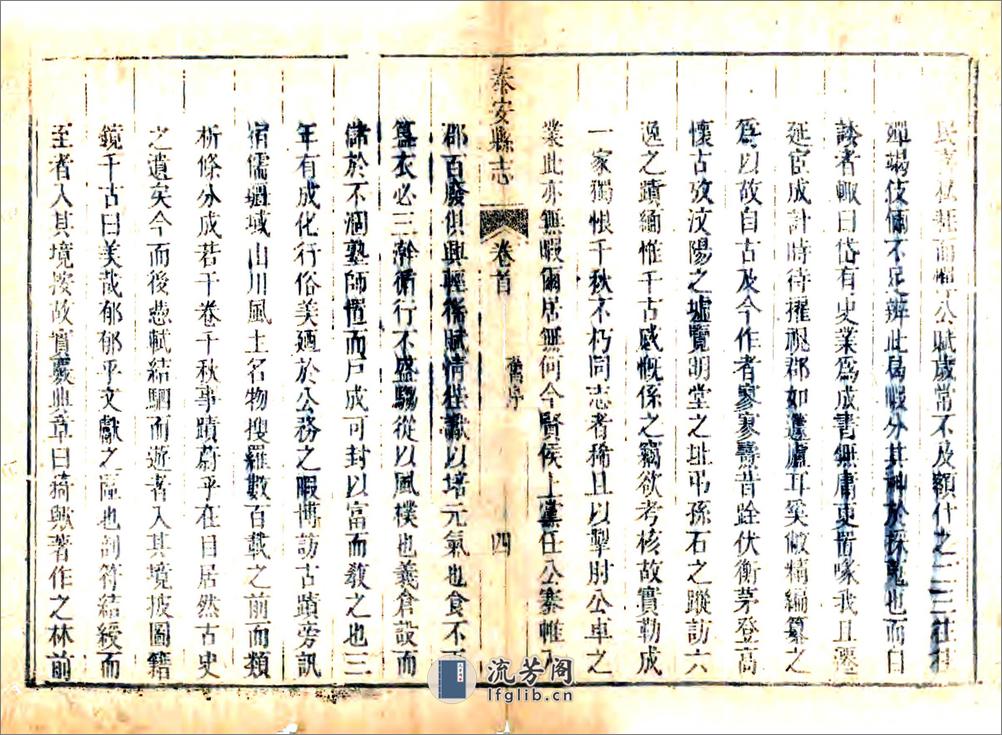 民
而
公賦歲常不及額什之二三往往
殫竭伎倆不足辨此局暇分其神於採風也而曰
談者輒曰岱有史業爲成書無庸更贅喙我且遷
延官成計時待擢視郡如蘧廬耳奚敝精編纂之
爲以故自古及今作者寥寥壽昔詮伏衡茅登高
懷古攷汶陽之墟覽明堂之址弔孫石之蹤訪六
逸之蹟緬惟千古感慨係之竊欲考核故實勒成
一家獨恨千秋不朽同志者稀且以掣肘公車之
業此亦無暇爾居無何今賢侯上黨任公褰帷入
泰安縣志
卷首
舊序
四
郡百廢俱興輕徭賦情徃讞以培元氣也食不
簋衣必三澣循行不盛騶從以風樸也義倉設而
儲於不涸塾師置而戶成可封以富而敎之也三
年有成化行俗美廼於公務之暇博訪古蹟旁訊
宿儒疆域山川風土名物搜羅數百載之前而類
析條分成若干卷千秋事蹟蔚乎在目居然古史
之遺矣今而後憑軾結駟而遊者入其境披圖籍
鏡千古曰美哉郁郁乎文獻之區也剖符結綬而
至者入其境按故實覈典章曰猗歟著作之林前
流芳阁
lfglib.cn